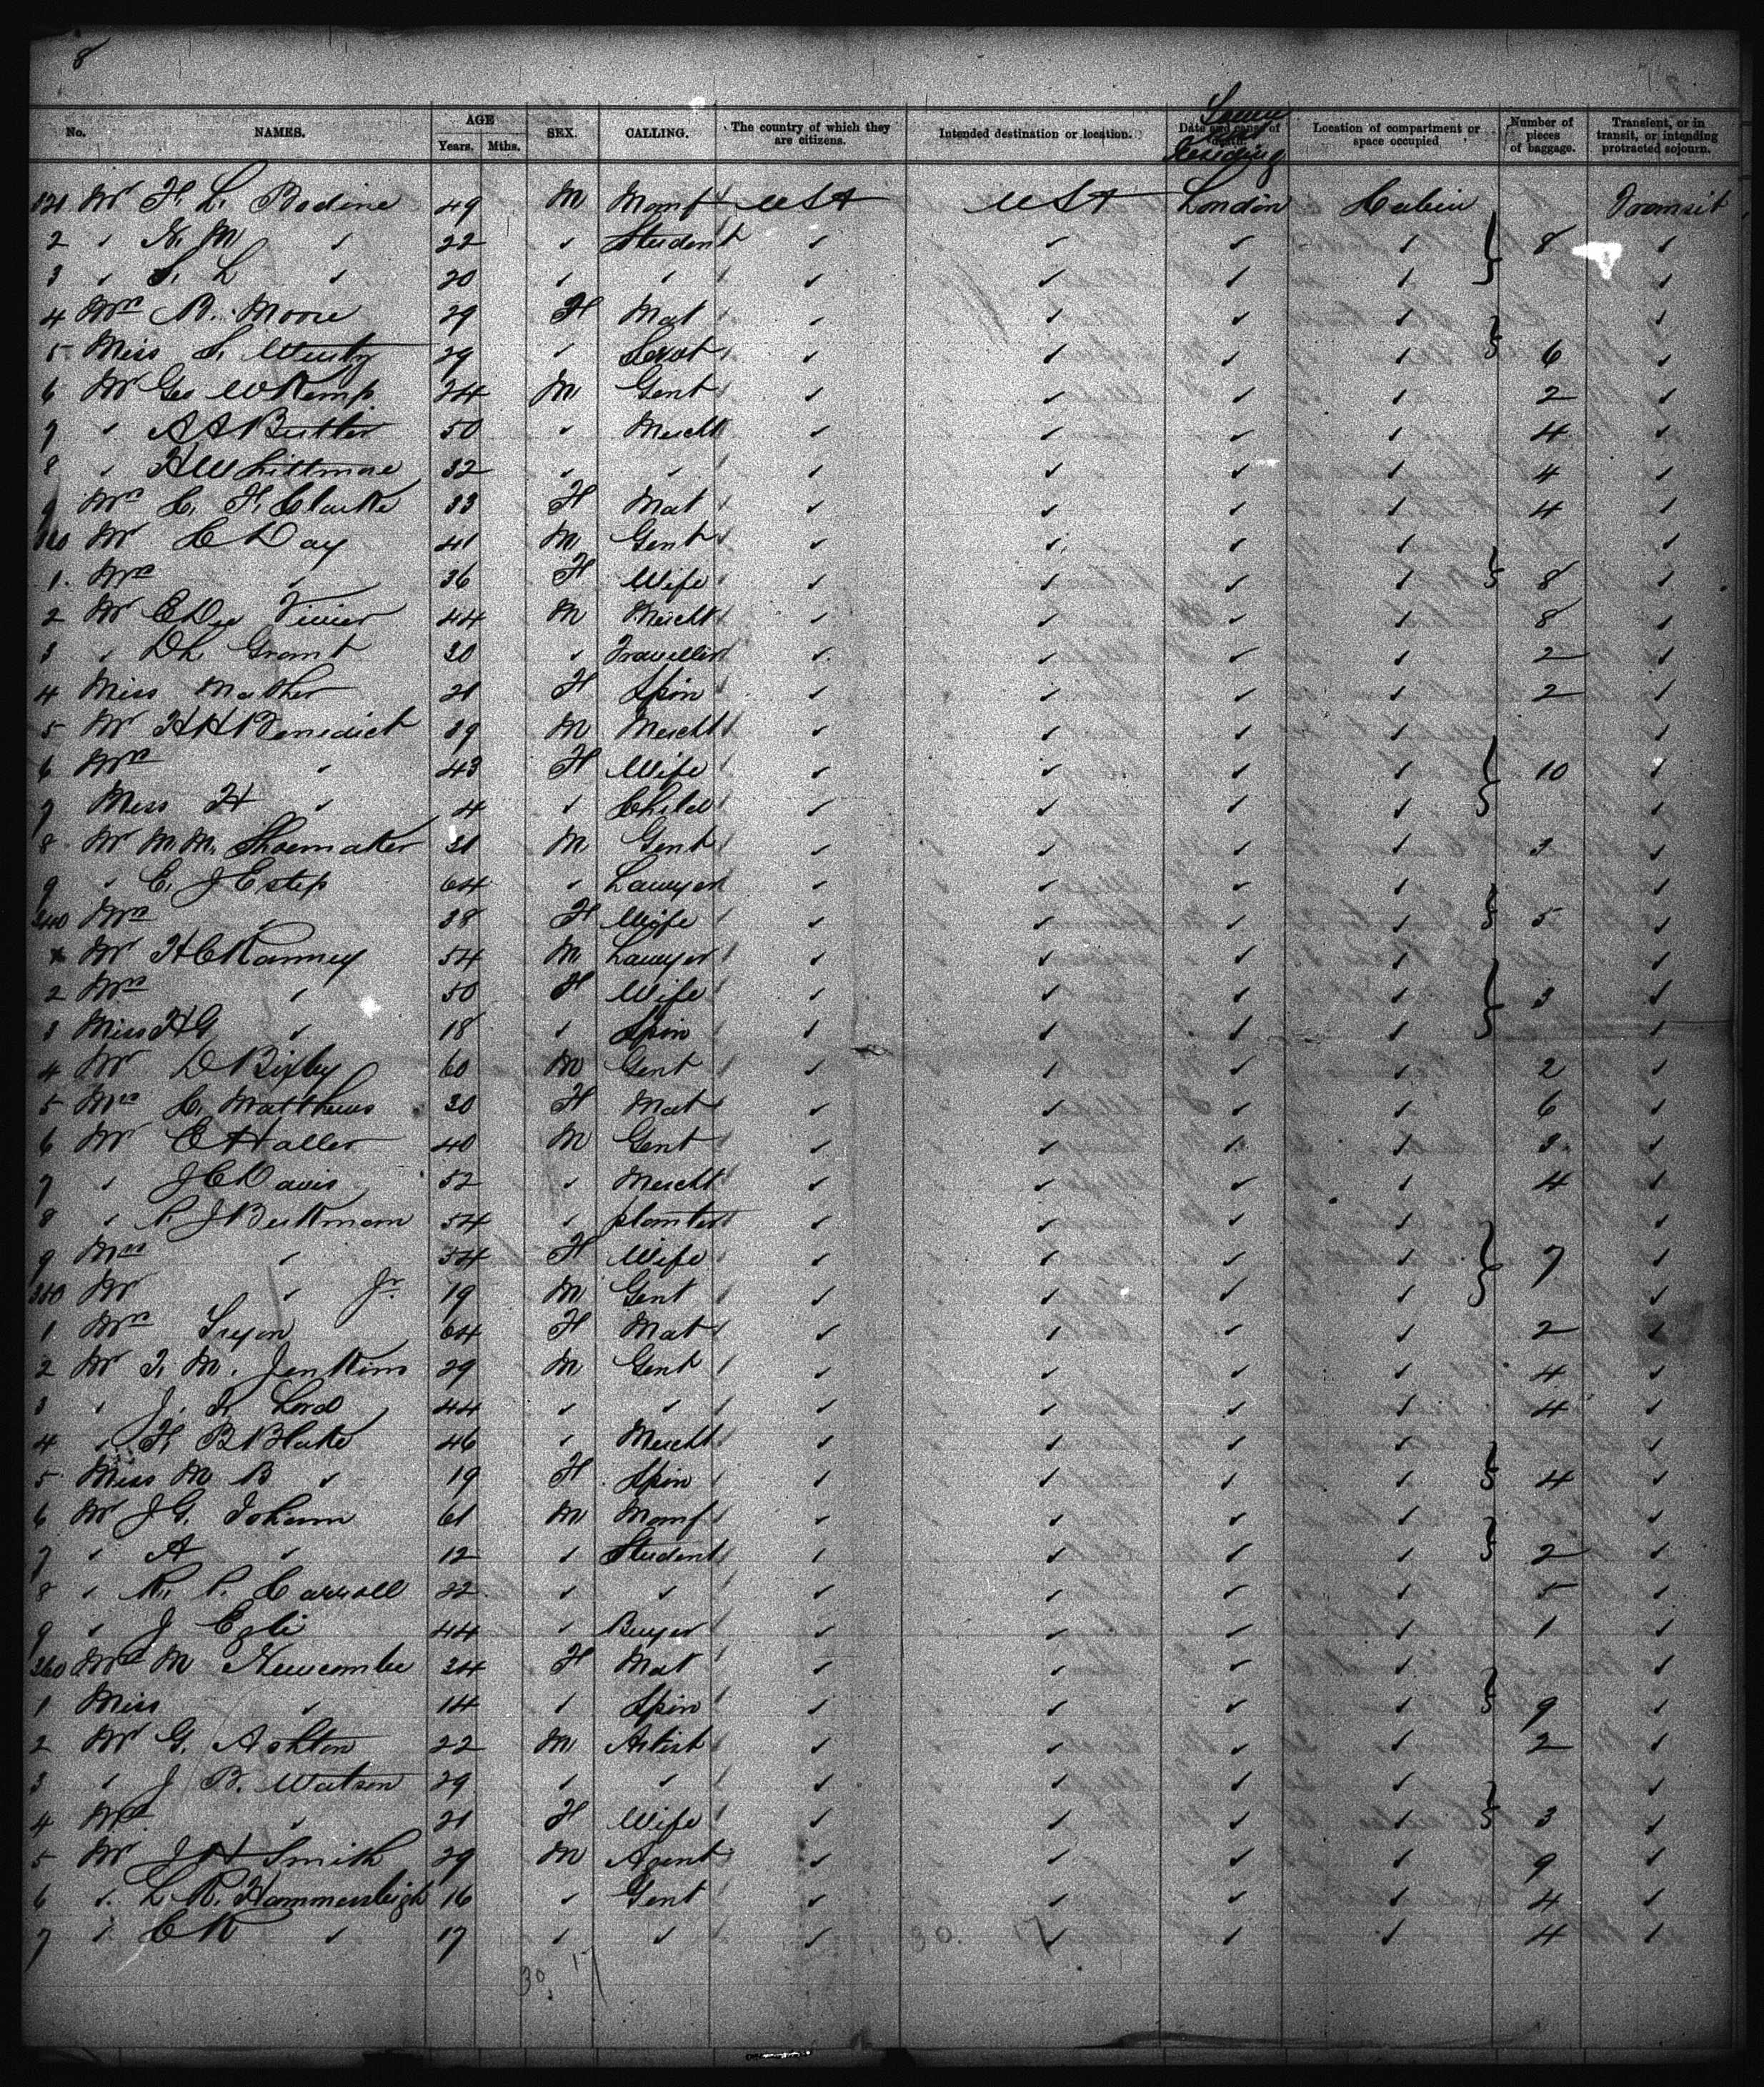 8
No. NAMES. AGE Years. Mths. SEX. CALLING. The country of which they are citizens. Intended destination or location. Date and cause of death. Residing Location of compartment or space occupied Number of pieces of baggage. Transient, or in transit, or intending protracted sojourn.
321 Mr F. L. Bodine 49 M Manf USA USA London Cabin Transit
2 " N. M " 22 " Student " " " " 8 "
3 " S. L " 20 " " " " " " "
4 Mrs B. Moore 29 F Mat " " " " "
5 Miss S. 29 " Servt " " " " 6 "
6 Mr Geo W Kemp 24 M Gent " " " " 2 "
7 " A A Butler 50 " Mercht " " " " 4 "
8 " H Whittmore 32 " " " " " " 4 "
9 Mrs C. F. Clarke 33 F Mat " " " " 4 "
330 Mr C Day 41 M Gent " " " " "
1 Mrs " 36 F Wife " " " " 8 "
2 Mr E Du Vivier 44 M Mercht " " " " 8 "
3 " Grant 30 " Traveller " " " " 2 "
4 Miss Mather 21 F Spin " " " " 2 "
5 Mr H H Benedict 39 M Mercht " " " " "
6 Mrs " 43 F Wife " " " " 10 "
7 Miss H " 4 " Child " " " " "
8 Mr M. M. Shoemaker 31 M Gent " " " " 3 "
9 " E. J Estep 64 " Lawyer " " " " "
340 Mrs " 38 F Wife " " " " 5 "
Mr H C Ranney 54 M Lawyer " " " " "
2 Mrs " 50 F Wife " " " " 3 "
3 Miss H G " 18 " Spin " " " " "
4 Mr D Bixby 60 M Gent " " " " 2 "
5 Mrs C. Matthews 30 F Mat " " " " 6 "
6 Mr C Haller 40 M Gent " " " " 3 "
7 " J C Davis 52 " Mercht " " " " 4 "
8 " P. J Berkman 54 " planter " " " " "
9 Mrs " 54 F Wife " " " " 7 "
350 Mr " Jr. 19 M Gent " " " " "
1 Mrs 64 F Mat " " " " 2 "
2 Mr T. M. Jenkins 29 M Gent " " " " 4 "
3 " J. K. Lord 44 " " " " " " 4 "
4 " F. B Blake 46 " Mercht " " " " "
5 Miss M B " 19 F Spin " " " " 4 "
6 Mr J G. Johann 61 M Manf " " " " "
7 " A " 12 " Student " " " " 2 "
8 " R. P. Carroll 22 " " " " " " 5 "
9 " J Egli 44 " Buyer " " " " 1 "
360 Mrs M Newcombe 34 F Mat " " " " "
1 Miss " 14 " Spin " " " " 9 "
2 Mr G. Ashton 22 M Artist " " " " 2 "
3 " J B. Watson 29 " " " " " " "
4 Mrs " 21 F Wife " " " " 3 "
5 Mr J H Smith 29 M Agent " " " " 9 "
6 " L R. Hammersleigh 16 " Gent " " " " 4 "
7 " C K " 17 " " " " " " 4 "
30. 17
30 17